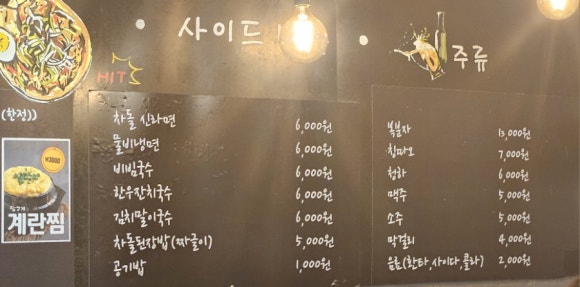 사이드
HIT
(한정))
₩3000
계란찜
차돌 신라면 6,000원
물비냉면 6,000원
비빔국수 6,000원
한우잔치국수 6,000원
김치말이국수 6,000원
차돌된장밥(짜글이) 5,000원
공기밥 1,000원
주류
복분자 13,000원
칭따오 7,000원
청하 6,000원
맥주 5,000원
소주 5,000원
막걸리 4,000원
음료(환타,사이다,콜라) 2,000원